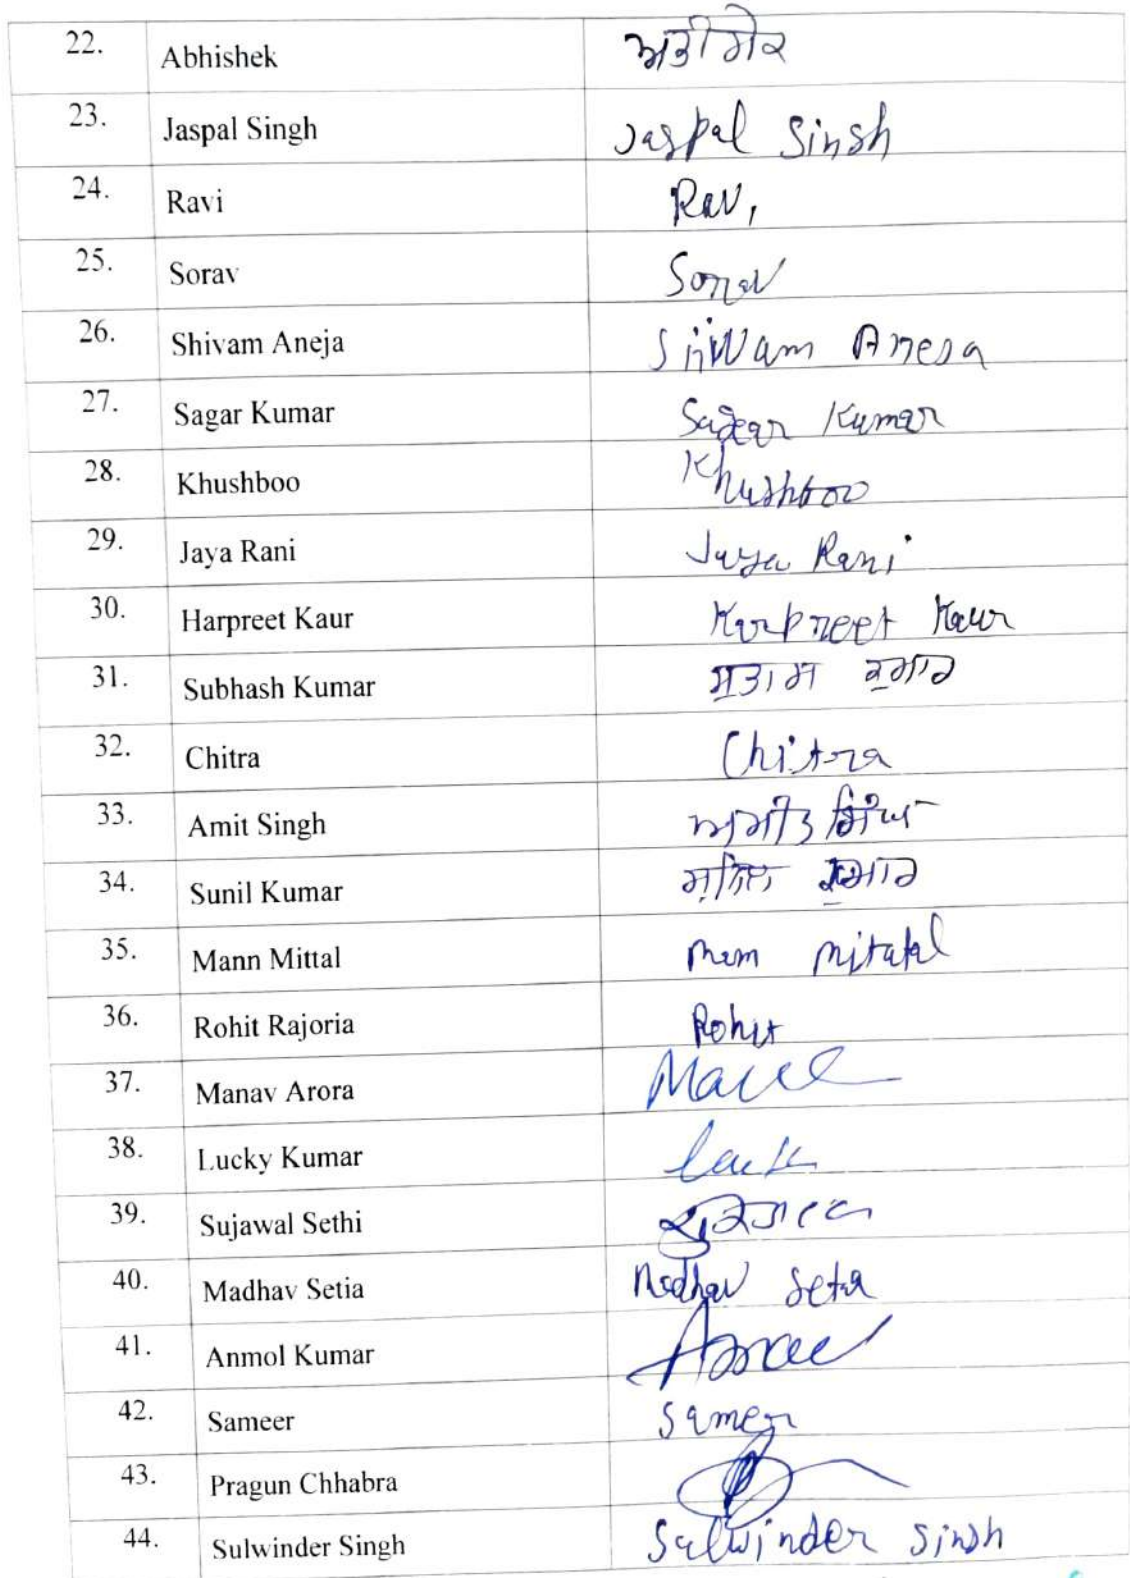 22. Abhishek ਅਭੀਸ਼ੇਕ
23. Jaspal Singh Jaspal Sinsh
24. Ravi Ravi
25. Sorav Sorav
26. Shivam Aneja Anesa
27. Sagar Kumar Kumar
28. Khushboo Khushboo
29. Jaya Rani Jaya Rani
30. Harpreet Kaur Karpreet Kaur
31. Subhash Kumar ਕੁਮਾਰ
32. Chitra Chitra
33. Amit Singh ਅਮੀਤ ਸਿੰਘ
34. Sunil Kumar ਸੁਨਿਲ ਕੁਮਾਰ
35. Mann Mittal
36. Rohit Rajoria Rohit
37. Manav Arora
38. Lucky Kumar
39. Sujawal Sethi
40. Madhav Setia Madhav
41. Anmol Kumar
42. Sameer Samer
43. Pragun Chhabra
44. Sulwinder Singh Sulwinder Sinsh